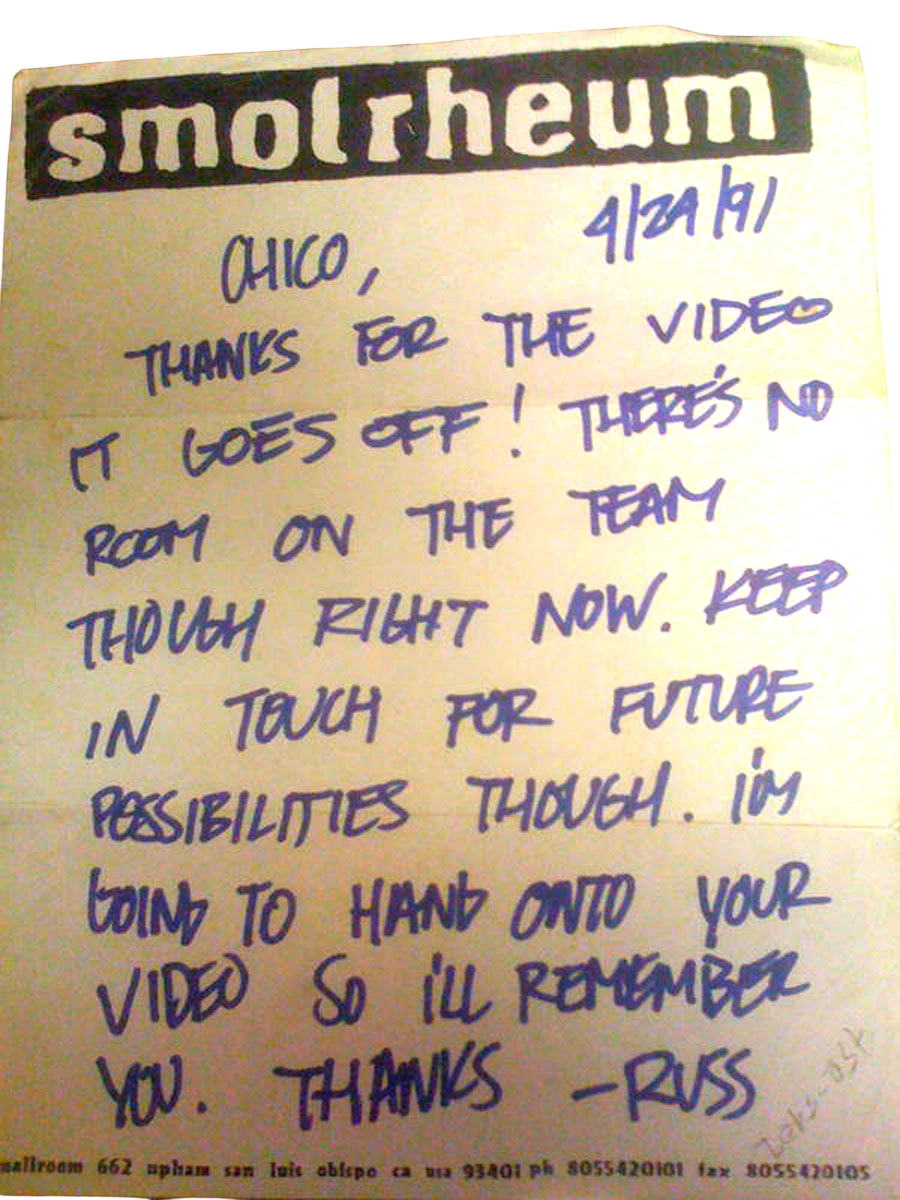 smolrheum
4/29/91
CHICO,
THANKS FOR THE VIDEO
IT GOES OFF! THERE'S NO
ROOM ON THE TEAM
THOUGH RIGHT NOW. KEEP
IN TOUCH FOR FUTURE
POSSIBILITIES THOUGH. I'M
GOING TO HANG ONTO YOUR
VIDEO SO I'LL REMEMBER
YOU. THANKS -RUSS
mallroom 662 upham san luis obispo ca usa 93401 ph 8055420101 fax 8055420105